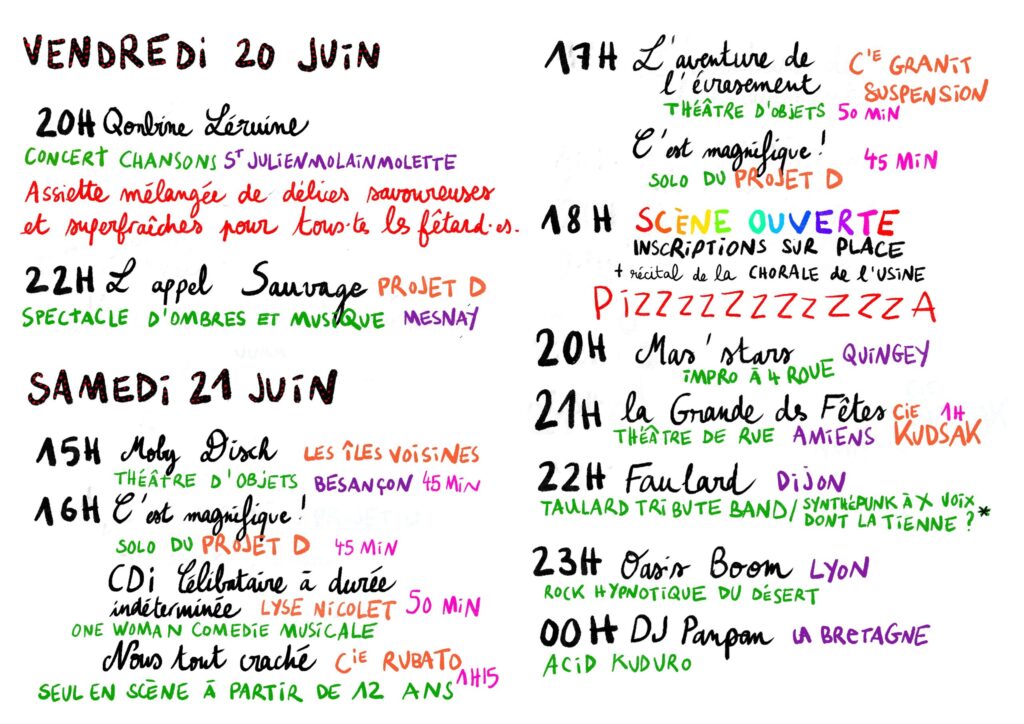 VENDREDI 20 JUIN
20H Qonbine Léruine
CONCERT CHANSONS ST JULIENMOLAINMOLETTE
Assiette mélangée de délices savoureuses
et superfraîches pour tous·tes les fêtard·es.
22H L'appel Sauvage PROJET D
SPECTACLE D'OMBRES ET MUSIQUE MESNAY
SAMEDI 21 JUIN
15H Moby Disch LES ÎLES VOISINES
THÉÂTRE D'OBJETS BESANÇON 45 MIN
16H C'est magnifique !
SOLO DU PROJET D 45 MIN
CDI Célibataire à durée
indéterminée LYSE NICOLET 50 MIN
ONE WOMAN COMEDIE MUSICALE
Nous tout craché CIE RUBATO
SEUL EN SCÈNE À PARTIR DE 12 ANS 1H15
17H L'aventure de
l'évrasement CIE GRANIT SUSPENSION
THÉÂTRE D'OBJETS 50 MIN
C'est magnifique ! 45 MIN
SOLO DU PROJET D
18H SCÈNE OUVERTE
INSCRIPTIONS SUR PLACE
+ récital de la CHORALE de l'USINE
PIZZZZZZZZZZZA
20H Mas'stars QUINGEY
IMPRO À 4 ROUE
21H la Grande des Fêtes CIE KUDSAK 1H
THÉÂTRE DE RUE AMIENS
22H Faulard DIJON
TAULARD TRIBUTE BAND/SYNTHÉPUNK À X VOIX
DONT LA TIENNE ?*
23H Oasis Boom LYON
ROCK HYPNOTIQUE DU DÉSERT
00H DJ Panpan LA BRETAGNE
ACID KUDURO